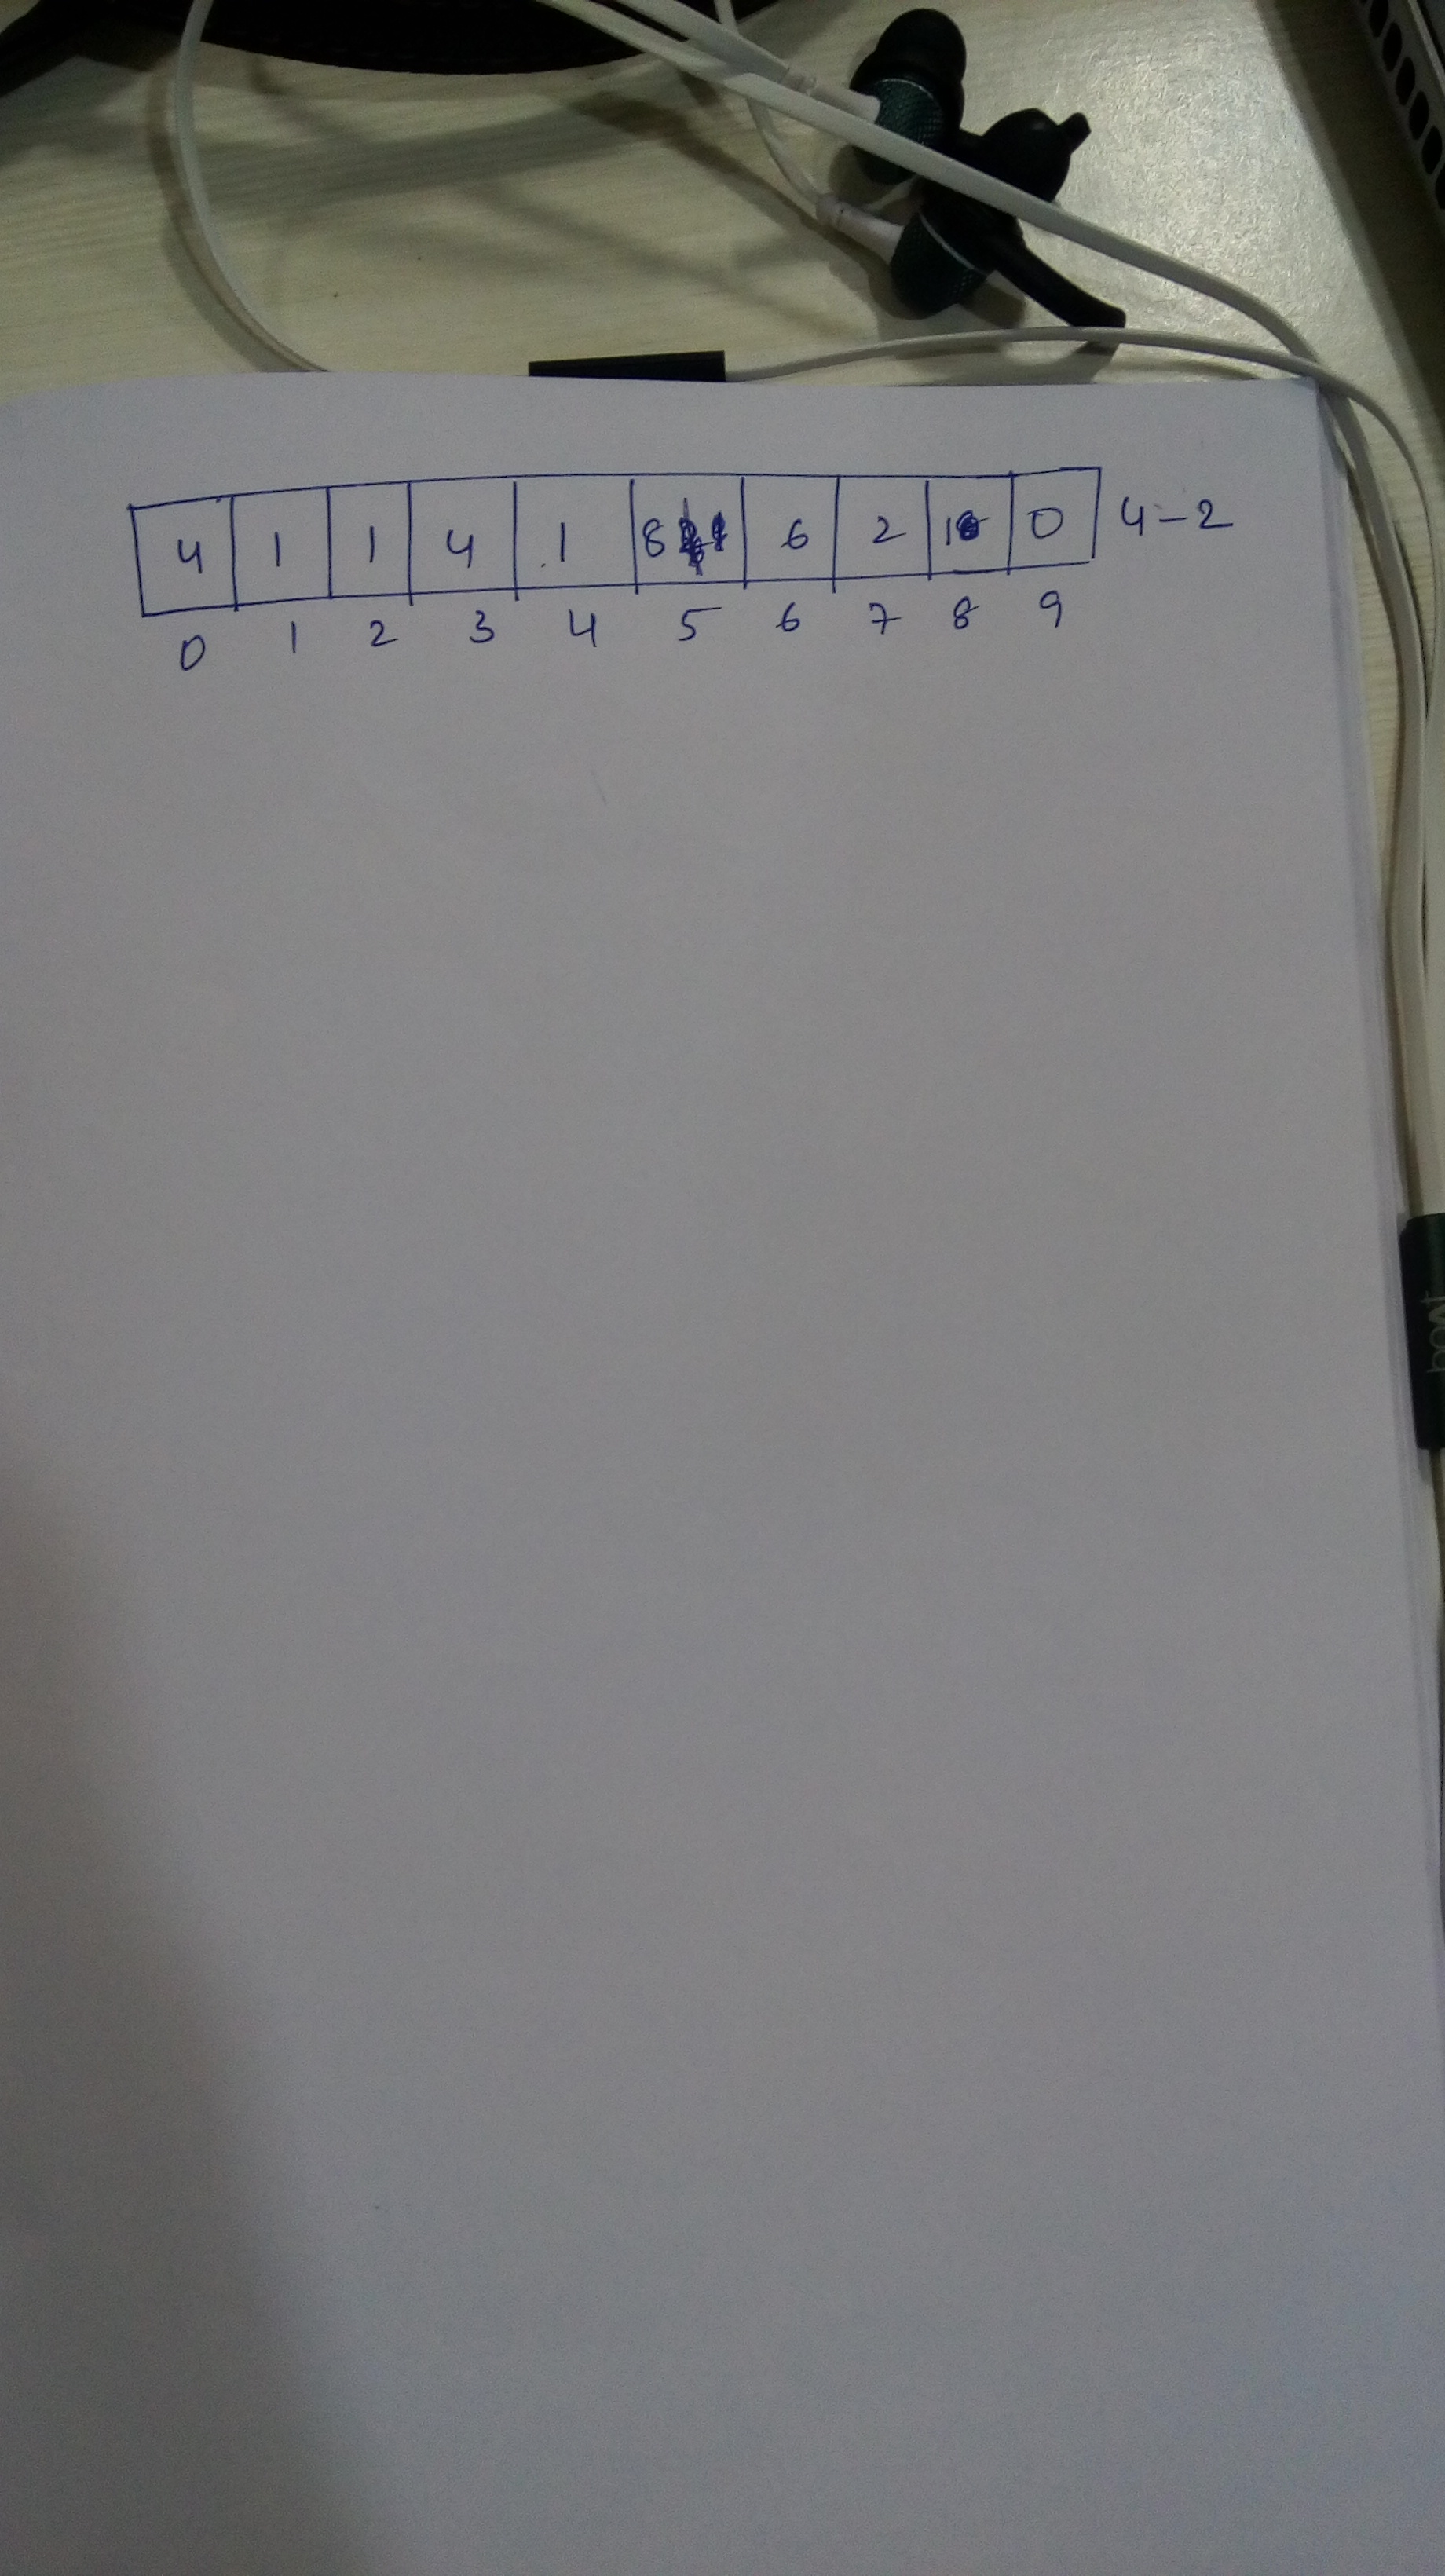 4 1 1 4 1 8 6 2 1 0 4-2
0 1 2 3 4 5 6 7 8 9
boAt